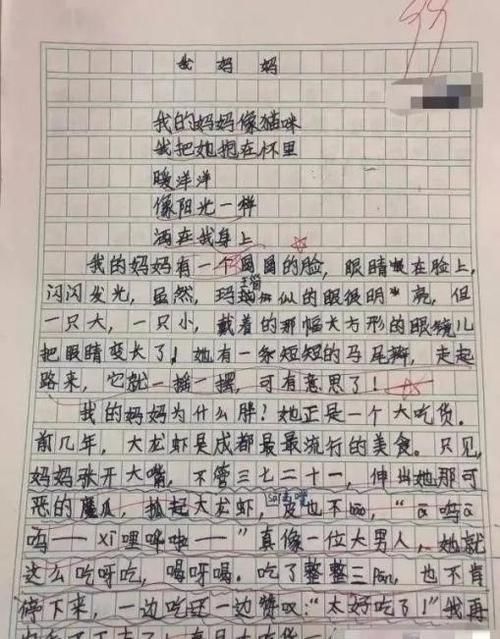 99
我妈妈
我的妈妈像猫咪
我把她抱在怀里
暖洋洋
像阳光一样
洒在我身上
我的妈妈有一个圆圆的脸，眼睛嵌在脸上，
闪闪发光，虽然，玛瑙似的眼很明亮，但
一只大，一只小，戴着的那幅大方形的眼镜儿
把眼睛变长了！她有一条短短的马尾辫，走起
路来，它就一摇一摆，可有意思了！
我的妈妈为什么胖？她正是一个大吃货。
前几年，大龙虾是成都最最流行的美食。只见，
妈妈张开大嘴，不管三七二十一，伸出她那可
恶的魔瓜，抓起大龙虾，皮也不bāo，“ā呜ā
呜——xī哩哗啦——”真像一位大男人，她就
这么吃呀吃，喝呀喝。吃了整整三Pán，也不肯
停下来，一边吃还一边赞叹：“太好吃了！”我再